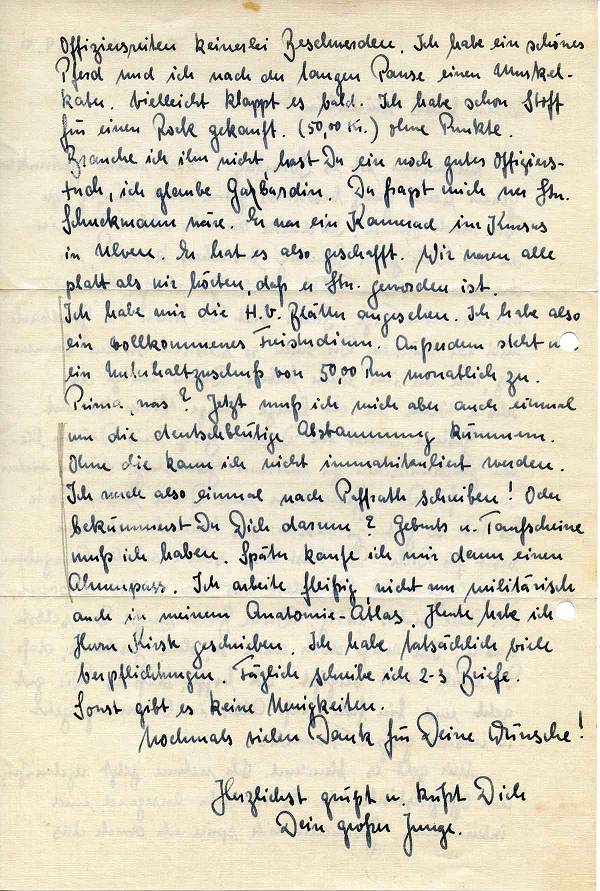 Offiziersreiten keinerlei Beschwerden. Ich habe ein schönes
Pferd und ich nach der langen Pause einen Muskel-
kater. Vielleicht klappt es bald. Ich habe schon Stoff
für einen Rock gekauft. (50,00 Kr.) ohne Punkte.
Brauche ich ihn nicht, hast Du ein noch gutes Offiziers-
tuch, ich glaube Gabardin. Du fragst mich wer Stn.
Schuckmann wäre. Er war ein Kamerad im Kursus
in Ulvere. Er hat es also geschafft. Wir waren alle
platt als wir hörten, daß er Stn. geworden ist.
Ich habe mir die H.V. Blätter angesehen. Ich habe also
ein vollkommenes Freistudium. Außerdem steht
ein Unterhaltzuschuß von 50,00 Rm monatlich zu.
Prima, was? Jetzt muß ich mich aber auch einmal
um die deutschblütige Abstammung kümmern.
Ohne die kann ich nicht immatrikuliert werden.
Ich werde also einmal nach Paffrath schreiben! Oder
bekümmerst Du Dich darum? Geburts u. Taufscheine
muß ich haben. Später kaufe ich mir dann einen
Ahnenpass. Ich arbeite fleißig nicht nur militärisch
auch in meinem Anatomie-Atlas. Heute habe ich
Herrn Kirsk geschrieben. Ich habe tatsächlich viele
Verpflichtungen. Täglich schreibe ich 2-3 Briefe.
Sonst gibt es keine Neuigkeiten.
Nochmals vielen Dank für Deine Wünsche!
Herzlichst grüßt u. küßt Dich
Dein großer Junge.